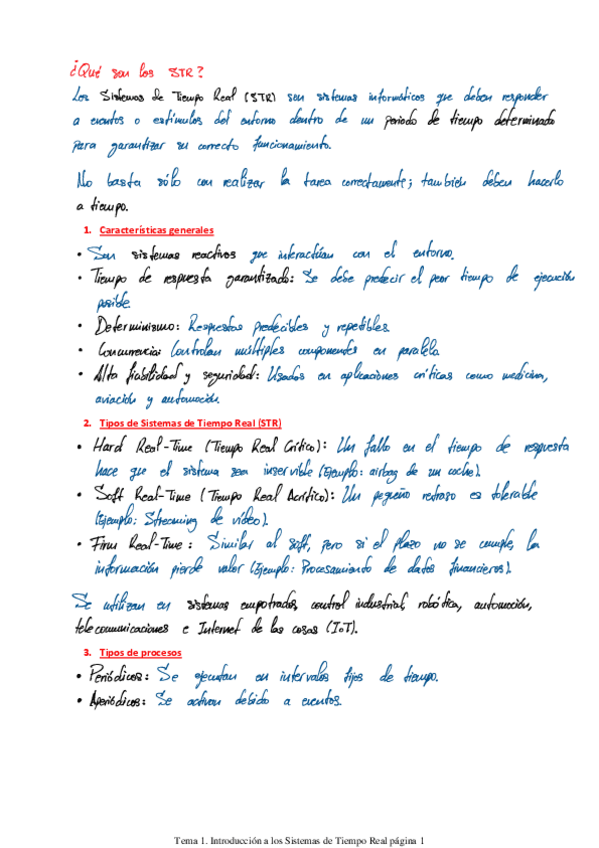 ¿Qué son los STR?
Los Sistemas de Tiempo Real (STR) son sistemas informáticos que deben responder
a eventos o estímulos del entorno dentro de un periodo de tiempo determinado
para garantizar su correcto funcionamiento.
No basta sólo con realizar la tarea correctamente; también deben hacerlo
a tiempo.
1. Características generales
• Son sistemas reactivos que interactúan con el entorno.
• Tiempo de respuesta garantizado: Se debe predecir el peor tiempo de ejecución
posible.
• Determinismo: Respuestas predecibles y repetibles.
• Concurrencia: Controlan múltiples componentes en paralelo
• Alta fiabilidad y seguridad: Usados en aplicaciones críticas como medicina,
aviación y automoción.
2. Tipos de Sistemas de Tiempo Real (STR)
• Hard Real-Time (Tiempo Real Crítico): Un fallo en el tiempo de respuesta
hace que el sistema sea inservible (Ejemplo: airbag de un coche).
• Soft Real-Time (Tiempo Real Acrítico): Un pequeño retraso es tolerable
(Ejemplo: Streaming de vídeo).
• Firm Real-Time: Similar al soft, pero si el plazo no se cumple, la
información pierde valor (Ejemplo: Procesamiento de datos financieros).
Se utilizan en sistemas empotrados, control industrial, robótica, automoción,
telecomunicaciones e Internet de las cosas (IoT).
3. Tipos de procesos
• Periódicos: Se ejecutan en intervalos fijos de tiempo.
• Aperiódicos: Se activan debido a eventos.
Tema 1. Introducción a los Sistemas de Tiempo Real página 1